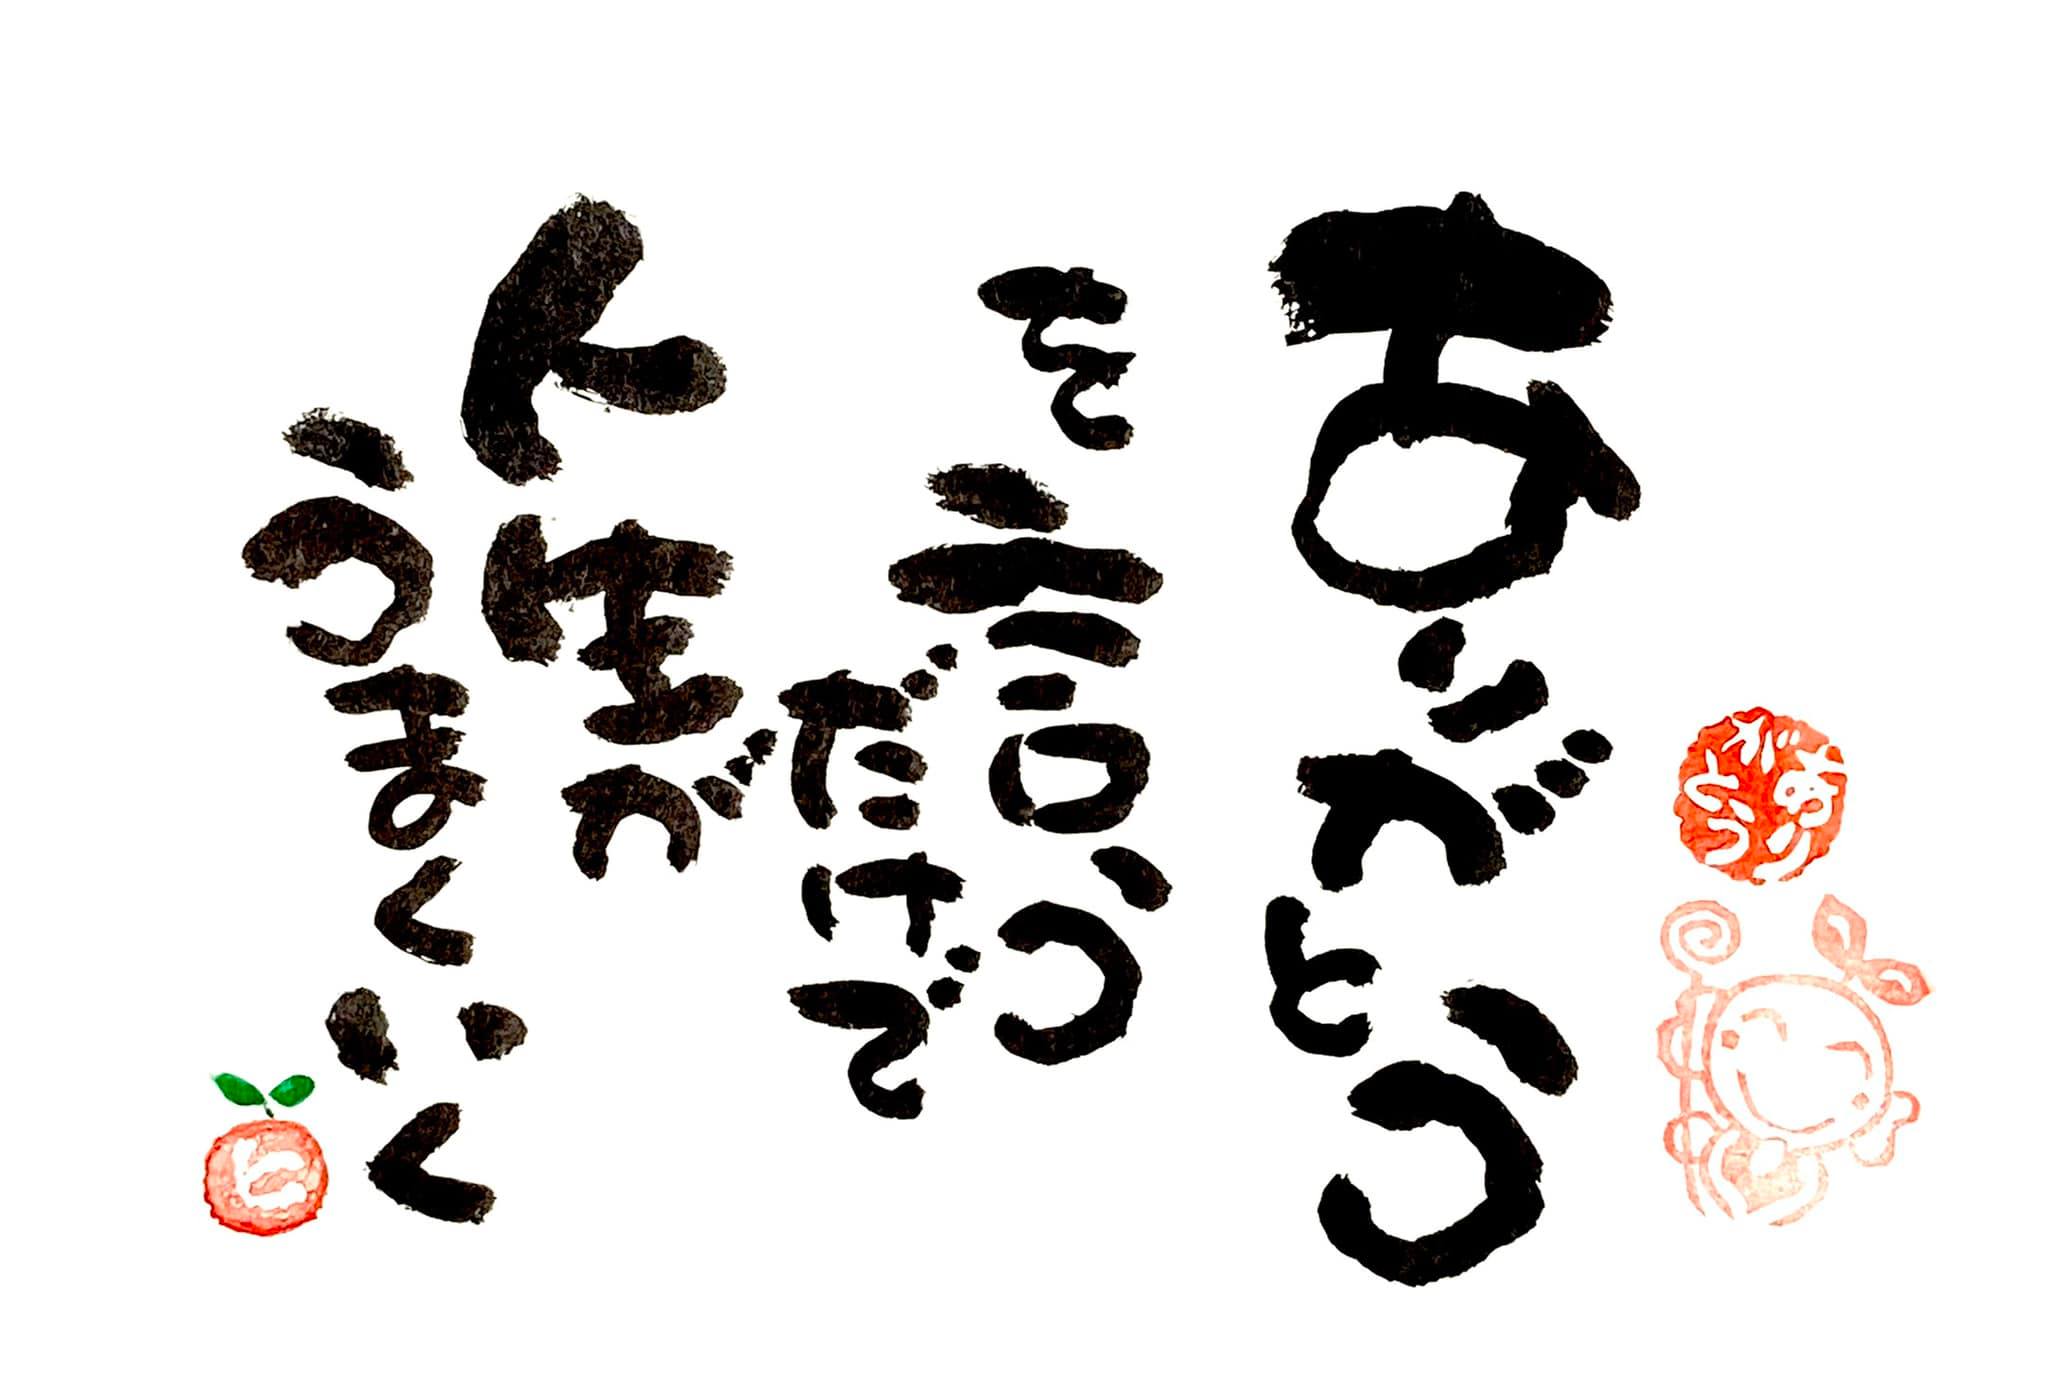 ありがとう
を言う
だけで
人生が
うまくいく
ありがとう
ヒ